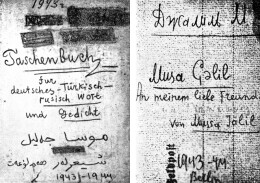 1943г.
Taschenbuch
für
deutsches-Türkisch-
russisch Wore
und Gedicht
موسا جليل
1943/1944
Джалиль М
Musa Gəlil
An meinem liebe Freund
von Mussa Jälil
Feldpost
1943-44
Berlin